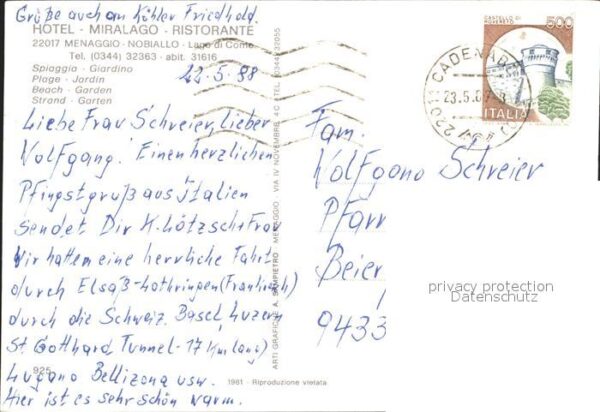 Grüße auch an Köhler Friedhold.
HOTEL - MIRALAGO - RISTORANTE
22017 MENAGGIO - NOBIALLO - Lago di Como
Tel. (0344) 32363 - abit. 31616
Spiaggia - Giardino
Plage - Jardin
Beach - Garden
Strand - Garten
22.5.88
Liebe Frau Schreier, lieber
Wolfgang. Einen herzlichen
Pfingstgruß aus Italien
sendet Dir K. Lötzsch + Frau
Wir hatten eine herrliche Fahrt
durch Elsaß-Lothringen (Frankreich)
durch die Schweiz. Basel, Luzern
St. Gotthard Tunnel - 17 Km lang)
Lugano Bellizona usw.
925
Hier ist es sehr schön warm.
1981 - Riproduzione vietata
ARTI GRAFICHE A. SAMPIETRO - MENAGGIO - VIA IV NOVEMBRE 40 TEL. (0344) 32055
CASTELLO DI
ROVERETO
500
ITALIA
CADENA
23.5.
Fam.
Wolfgang Schreier
Pfarr
Beier
9433
privacy protection
Datenschutz